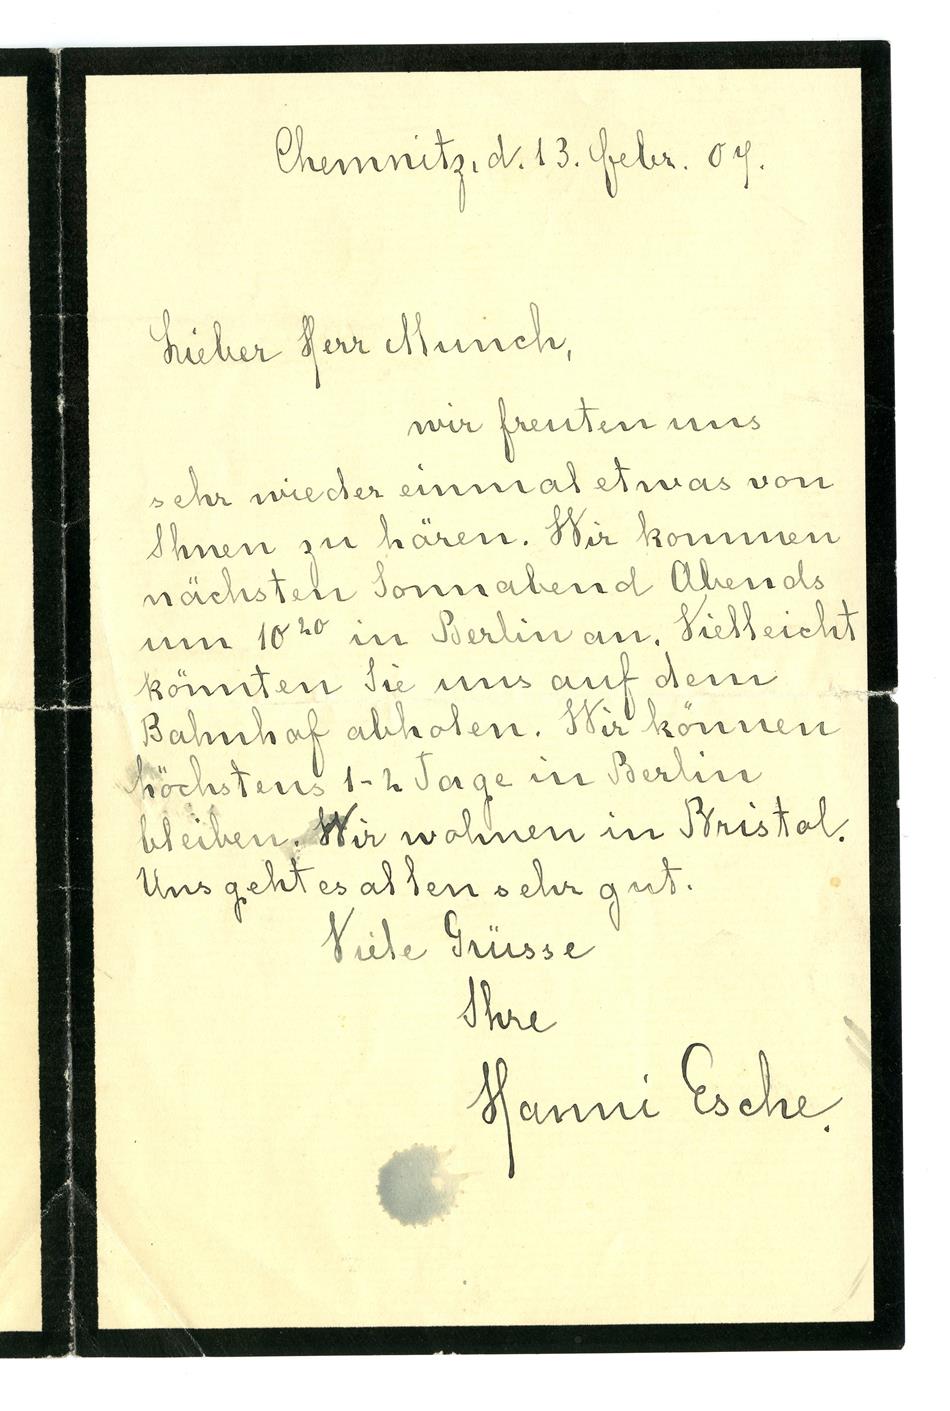 Chemnitz, d. 13. Febr. 07.
Lieber Herr Munch,
wir freuten uns
sehr wieder einmal etwas von
Ihnen zu hören. Wir kommen
nächsten Sonnabend Abends
um 10 20 in Berlin an. Vielleicht
könnten Sie uns auf dem
Bahnhof abholen. Wir können
höchstens 1-2 Tage in Berlin
bleiben. Wir wohnen in Bristol.
Uns geht es allen sehr gut.
Viele Grüsse
Ihre
Hanni Esche.